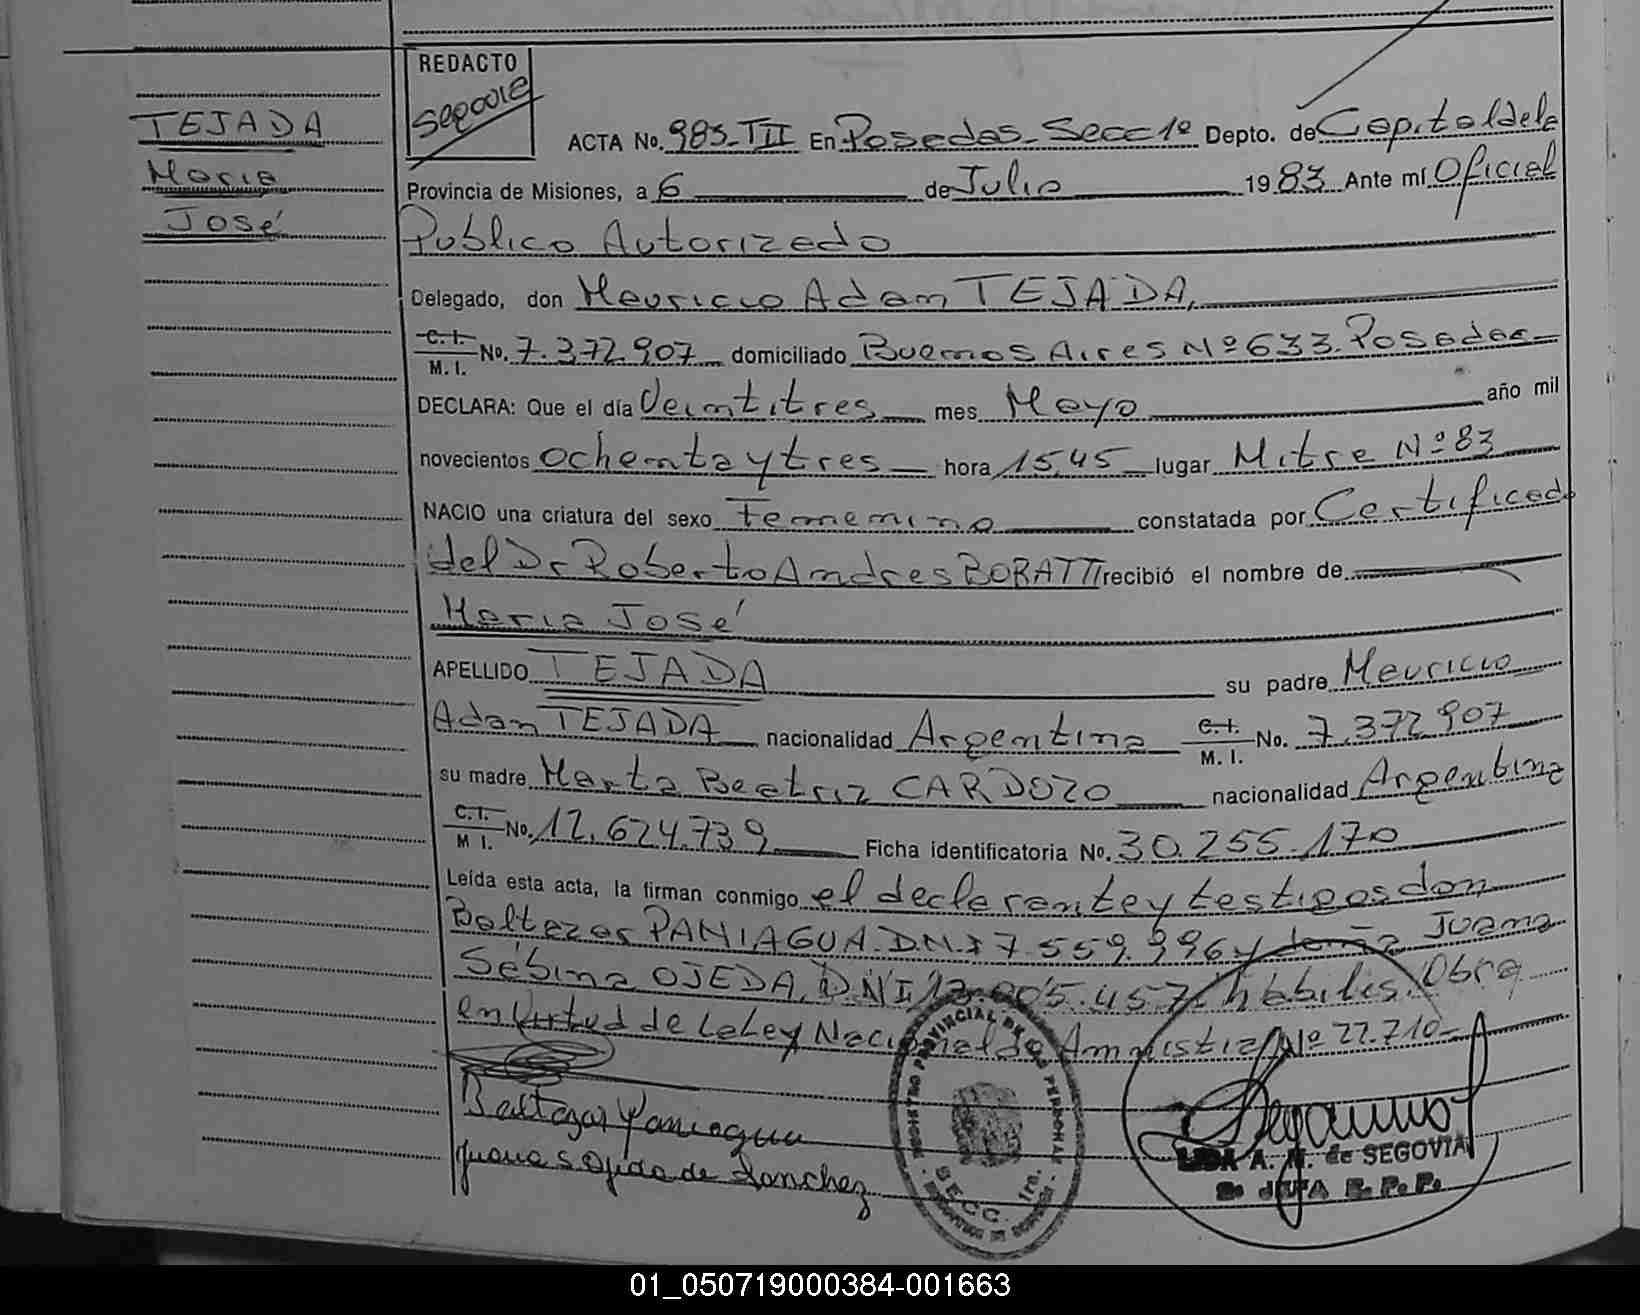 REDACTO
Segovia
TEJADA
Maria
José
ACTA No. 983-TII En Posadas-Secc 1º Depto. de Capital de la
Provincia de Misiones, a 6 de Julio 1983 Ante mí Oficial
Publico Autorizado
Delegado, don Mauricio Adan TEJADA,
C. I. M. I. No. 7.372.907 domiciliado Buenos Aires Nº 633. Posadas
DECLARA: Que el día Veintitres mes Mayo año mil
novecientos ochenta y tres hora 15,45 lugar Mitre Nº 83
NACIO una criatura del sexo Femenino constatada por Certificado
del Dr Roberto Andres BORATTI recibió el nombre de
Maria José
APELLIDO TEJADA su padre Mauricio
Adan TEJADA nacionalidad Argentina C. I. M. I. No. 7.372.907
su madre Marta Beatriz CARDOZO nacionalidad Argentina
C. I. M I. No. 12.624.739 Ficha identificatoria No. 30.255.170
Leída esta acta, la firman conmigo el declarante y testigos don
Baltazar PANIAGUA. D.N.I 7.559.996 y doña Juana
Sabina OJEDA, D.N.I 13.005.457. habiles. Obra
en Virtud de la Ley Nacional de Amnistia Nº 22.710-
Baltazar Paniagua
Juana S Ojeda de Sanchez
REGISTRO PROVINCIAL DE LAS PERSONAS
SECC. 1ra.
A. M. de SEGOVIA
JEFA R. P. P.
01_050719000384-001663